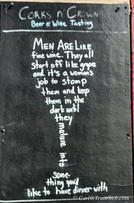 Corks n Crown
Beer & Wine Tasting
Men Are Like
fine wine. They all
start off like grapes
and it's a womans
job to stomp
them and keep
them in the
dark until
they
mature
into
some-
thing you'd
like to have dinner with